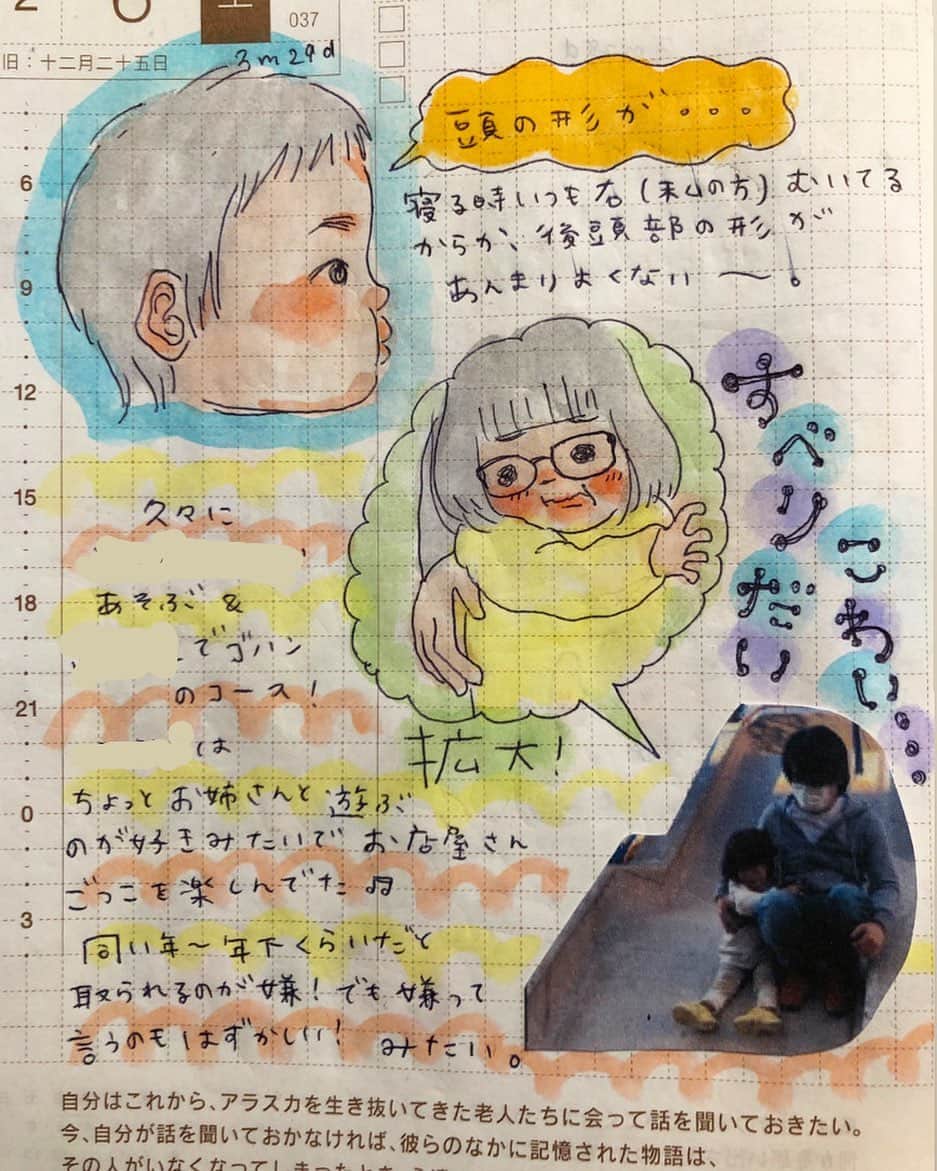 2 6
土
037
旧：十二月二十五日
3m29d
頭の形が。。。
寝る時いつも右(私の方)むいてる
からか、後頭部の形が
あんまりよくない〜。
6
9
12
15
18
21
0
3
すべりだい
こわい…
久々に
あそぶ &
でゴハン
のコース!
は
拡大!
ちょっとお姉さんと遊ぶ
のが好きみたいでお店屋さん
ごっこを楽しんでた♫
同い年〜年下くらいだと
取られるのが嫌!でも嫌って
言うのもはずかしい! みたい。
自分はこれから、アラスカを生き抜いてきた老人たちに会って話を聞いておきたい。
今、自分が話を聞いておかなければ、彼らのなかに記憶された物語は、
その人がいなくなってしまったとき、